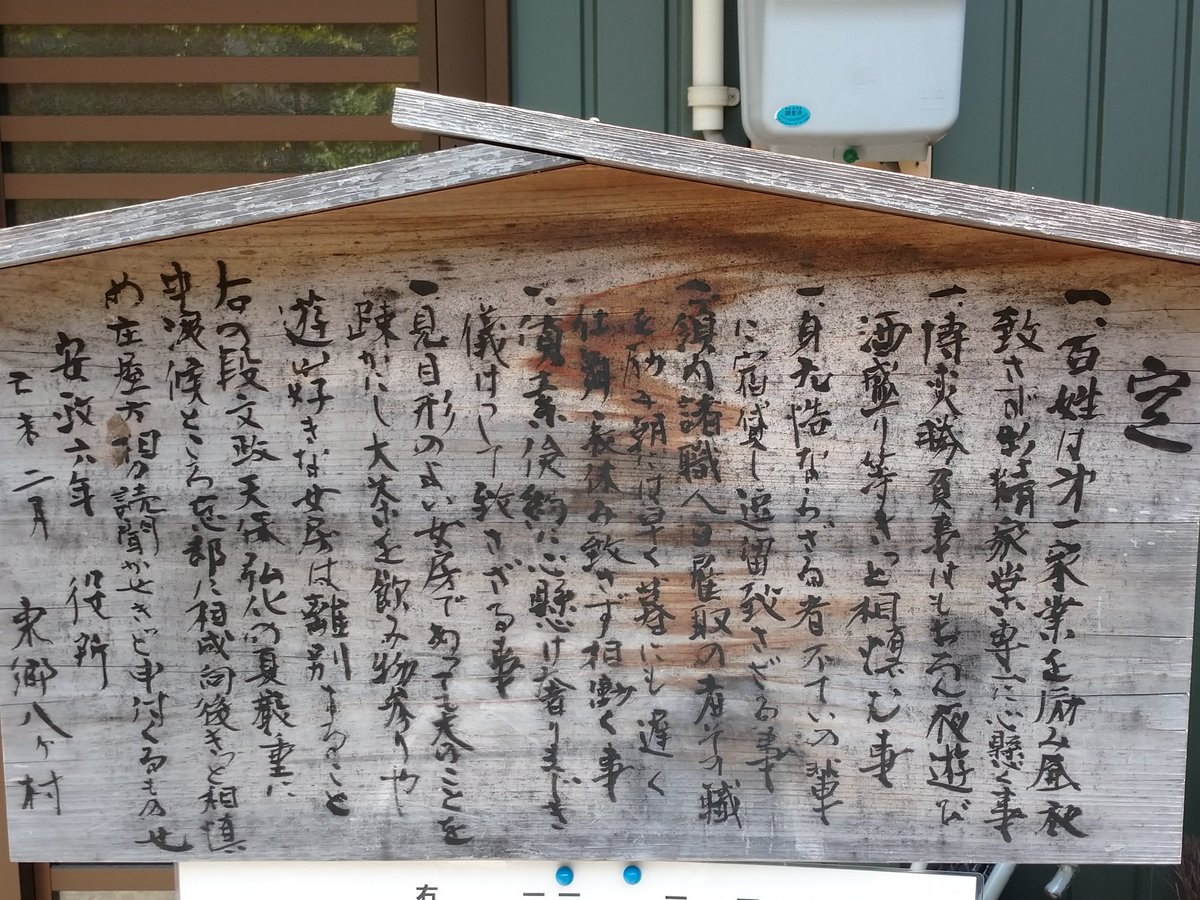 定
一、百姓は第一家業を励み昼夜
致さず出精家業専一に心懸く事
一、博奕勝負事はもちろん夜遊び
酒盛り等きっと相慎む事
一、身元慥ならざる者不ていの輩
に宿貸し逗留致さざる事
一、領内諸職人日雇取の者その職
を励み朝には早く暮にも遅く
仕舞 夜休み致さず相働く事
一、質素倹約に心懸け奢りまじき
儀けっして致さざる事
一、見目形のよい女房であっても夫のことを
疎かにし大茶を飲み物参りや
遊山好きな女房は離別すること
右の段文政天保弘化の夏厳重に
申渡候ところ忘却に相成向後きっと相慎
め庄屋方 読聞かせ 申付くるもの也
安政六年 役所
己未二月 東郷八ヶ村
右